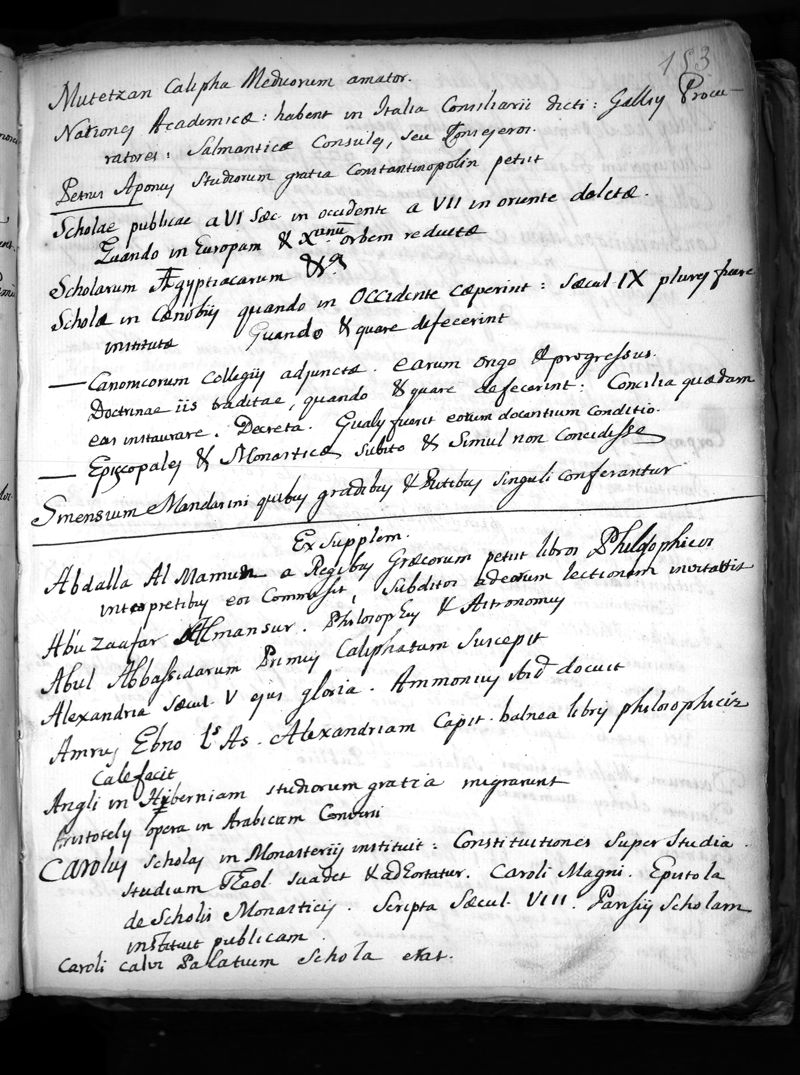 153
Mutetzan Calipha Medicorum amator.
Nationes Academicæ: habent in Italia Consiliarii dicti: Gallis Procu-
ratores: Salmanticæ Consules, seu Consejeros.
Petrus Aponus Studiorum gratia Constantinopolin petiit
Scholae publicae a VI Sæc. in occidente a VII in oriente deletæ.
Quando in Europam & Xnum orbem reductæ
Scholarum Ægyptiacarum &a
Scholæ in Cænobiis quando in OCCidente cæperint: sæcul IX plures fuere
institutæ Quando & quare defecerint
— Canonicorum Collegiis adjunctæ. earum origo & progressus.
Doctrinae iis traditae, quando & quare defecerint: Concilia quædam
eas instaurare. Decreta. Qualis fuerit eorum docantium Conditio.
— Episcopales & Monasticæ subito & Simul non Concidisse
Sinensium Mandarini quibus gradibus & singuli Conferantur
Ex Supplem.
Abdalla Al Mamun a Regibus Græcorum petiit libros Philosophicos
interpretibus eos Commisit, Subditos ad eorum lectionem invitavit
Abu Zaafar Almansur. Philosophus & Astronomus
Abul Abbassidarum Primus Caliphatum Suscepit
Alexandria sæcul. V ejus gloria. Ammonius ibid docuit
Amrus Ebno ls As. Alexandriam Capit. balnea libris philosophicis
Calefacit
Angli in Hyberniam studiorum gratia migrarunt
Aristotelis opera in Arabicum Conversi
Carolus Scholas in Monasteriis instituit: Constituitiones Super Studia.
studium Theol suadet & adhortatur. Caroli Magni. Epistola
de Scholis Monasticis. Scripta Sæcul. VIII. Parisiis Scholam
instituit publicam.
Caroli calvi Pallatium Schola erat.